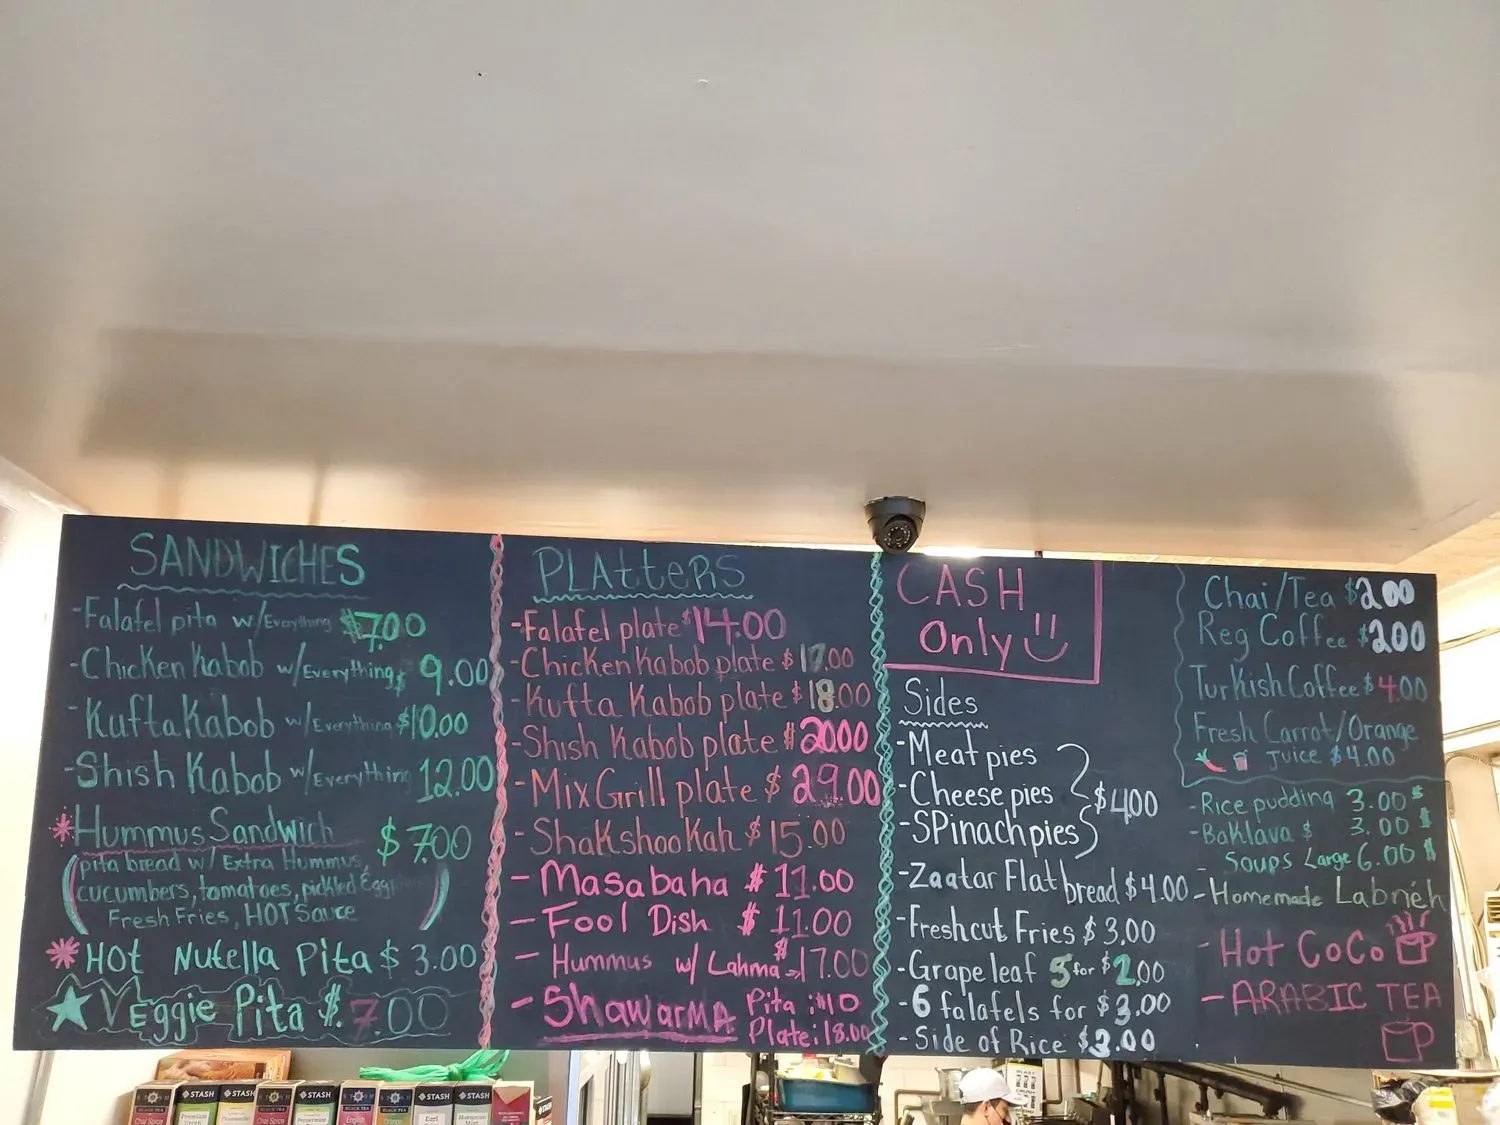 SANDWICHES
-Falafel pita w/Everything $7.00
-Chicken Kabob w/Everything $ 9.00
-Kufta Kabob w/Everything $10.00
-Shish Kabob w/Everything 12.00
*Hummus Sandwich $7.00
(pita bread w/ Extra Hummus,
cucumbers, tomatoes, pickled Egg
Fresh Fries, HOT Sauce)
*HOT Nutella Pita $ 3.00
Veggie Pita $ 7.00
PLAtteRS
-Falafel plate $14.00
-Chicken Kabob plate $17.00
-Kufta Kabob plate $18.00
-Shish Kabob plate $20.00
-Mix Grill plate $ 29.00
-Shakshookah $ 15.00
-Masabaha $ 11.00
-Fool Dish $ 11.00
-Hummus w/ Lahma $17.00
-ShawarMA Pita: $10
Plate: 18.00
CASH
Only
Sides
-Meat pies
-Cheese pies $4.00
-SPinach pies
-Zaatar Flat bread $4.00
-Fresh cut Fries $3.00
-Grape leaf 5 for $2.00
-6 falafels for $3.00
-Side of Rice $3.00
Chai/Tea $2.00
Reg Coffee $2.00
Turkish Coffee $4.00
Fresh Carrot/Orange
Juice $4.00
-Rice pudding 3.00 $
-Baklava $ 3.00 $
-Soups Large 6.00 $
-Homemade Labneh
-Hot CoCo
-ARABIC TEA
STASH
STASH
STASH
STASH
STASH